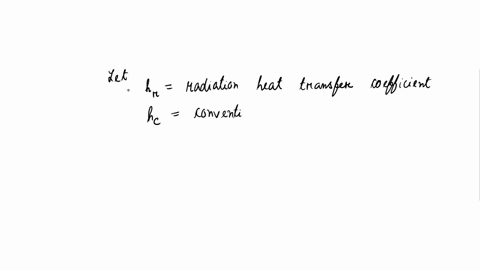 Let.
h_r = radiation heat transfer coefficient
h_c = conventi